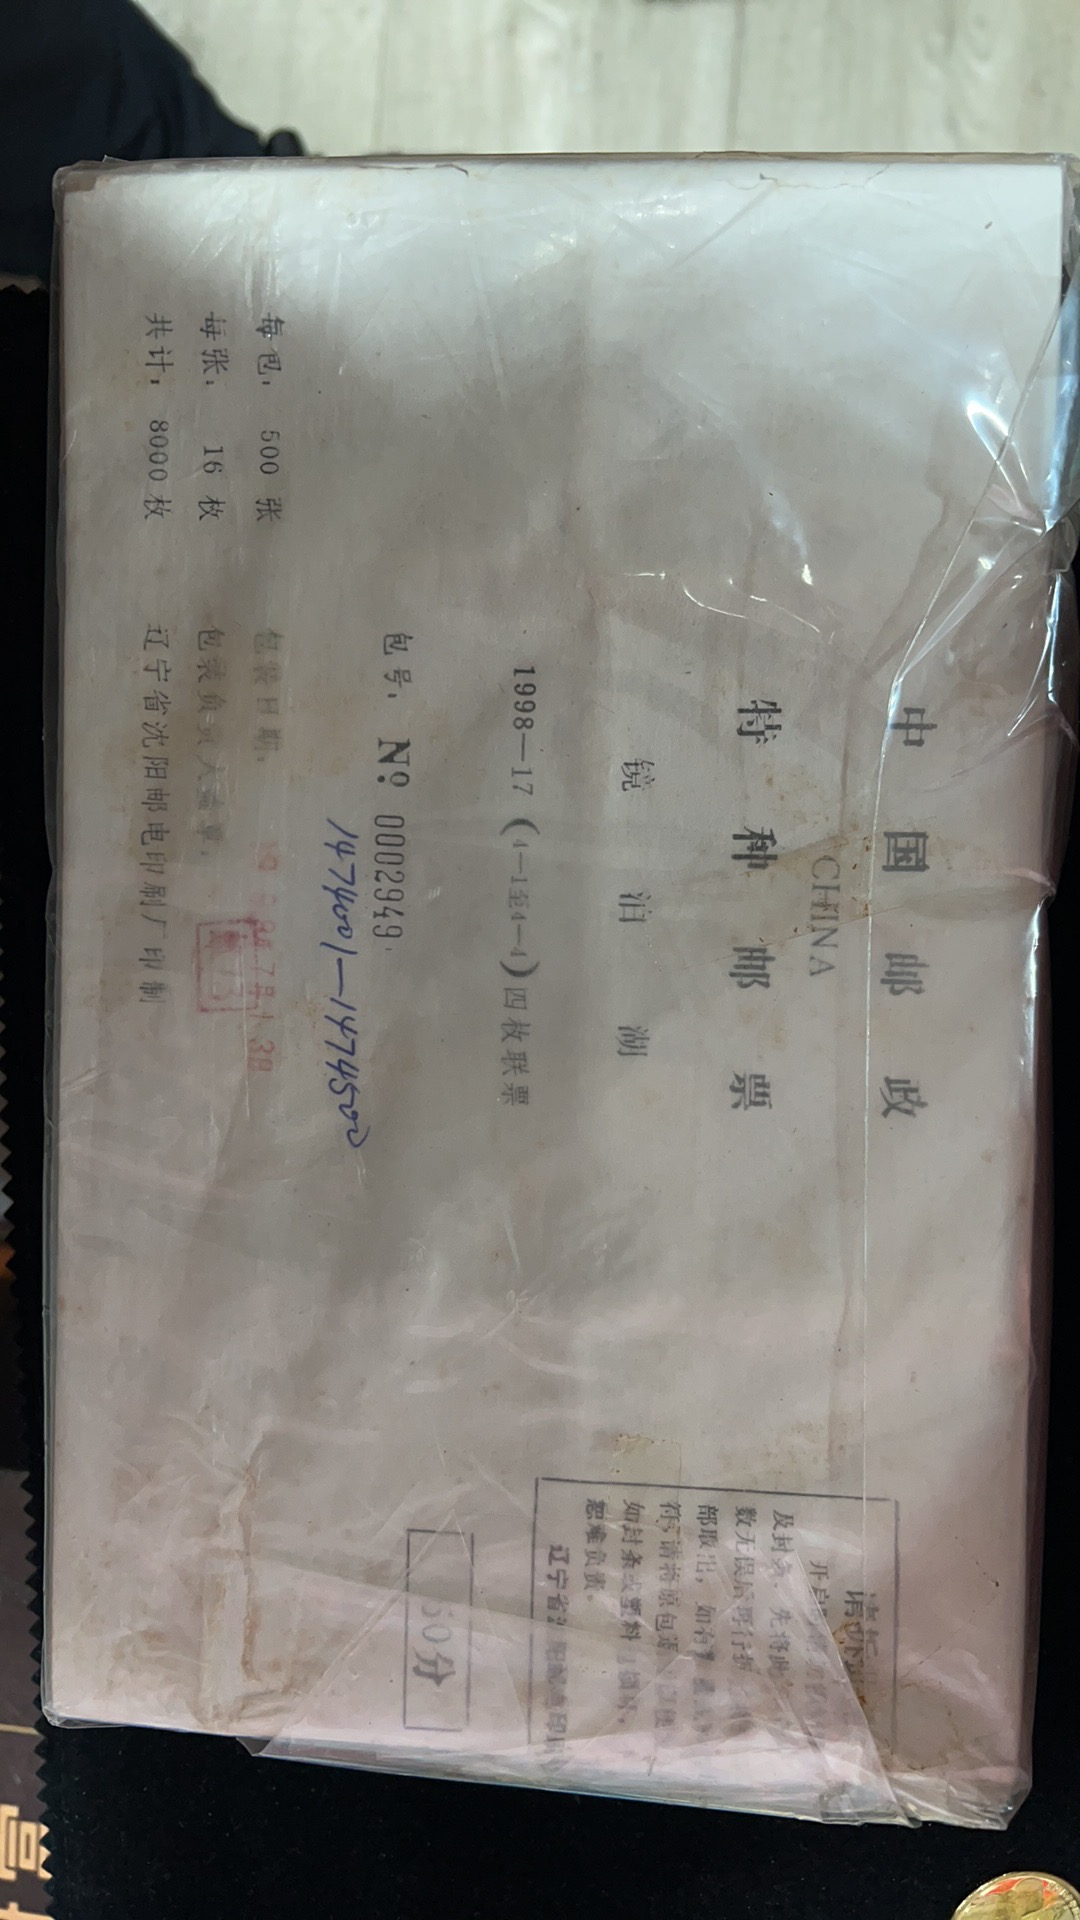 中国邮政
CHINA
特种邮票
镜泊湖
1998－17（4－1至4－4）四枚联票
包号：№ 0002949
1474001－1474500
每包：500 张
每张：16 枚
共计：8000 枚
包装日期：
包装负责人盖章：
辽宁省沈阳邮电印刷厂印制
及封条，先将此
数无误后再行拆
部取出，如有
符，请将原包
如封条或塑料
恕难负责。
50分